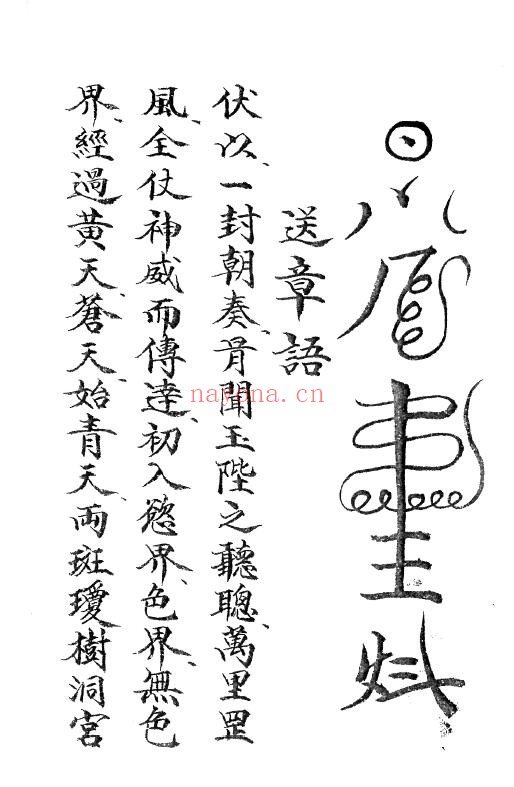 送章語
伏以、一封朝奏、聞玉陛之聽聰、萬里罡
風、全仗神威而傳逹、初入慾界、色界、無色
界、經過黃天、蒼天、始青天、兩斑瓊樹洞宮
nayona.cn